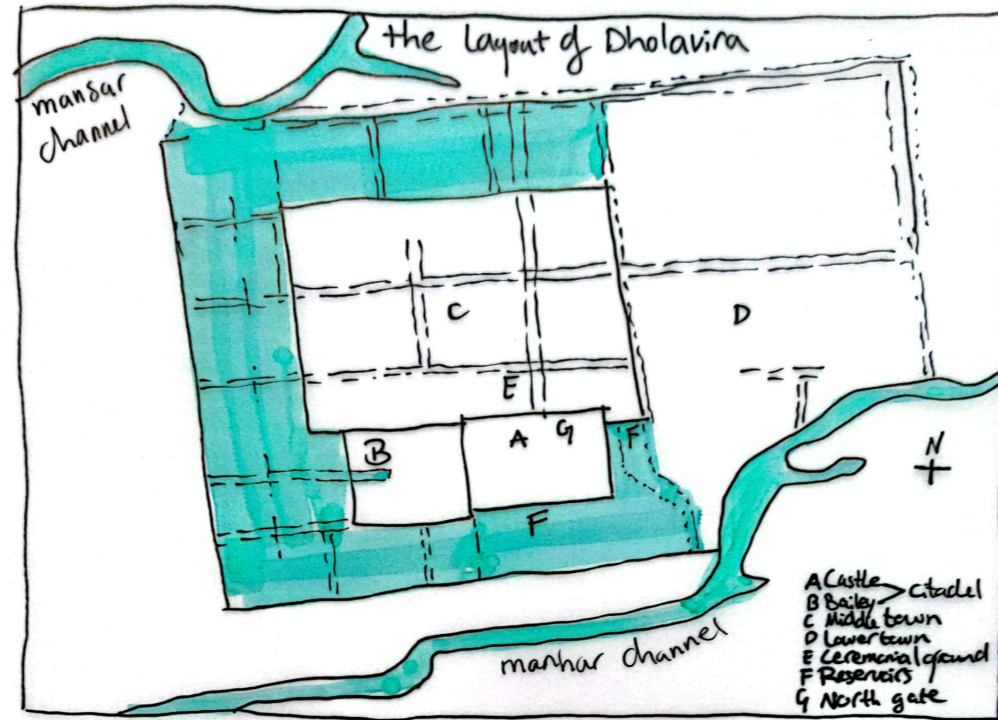 the Layout of Dholavira
mansar
channel
C
D
E
B
A
G
F
F
N
manhar channel
A Castle
B Bailey
citadel
C Middle town
D Lower town
E Ceremonial ground
F Reservoirs
G North gate